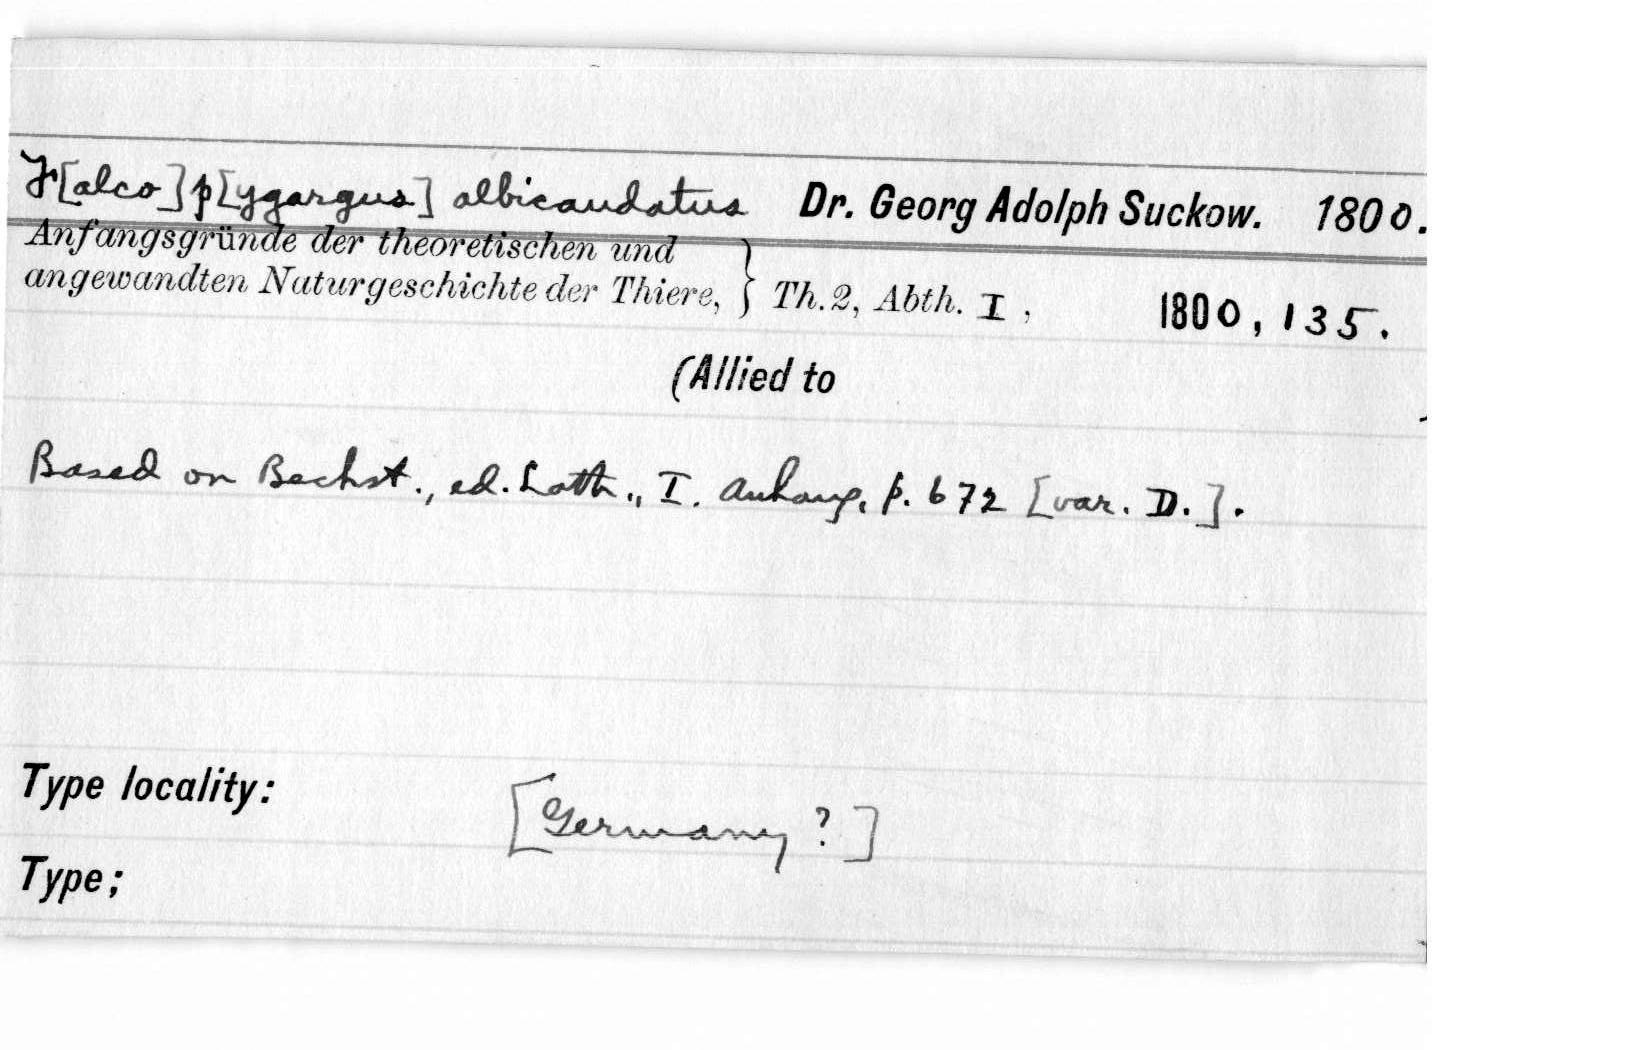 F[alco] p[ygargus] albicaudatus Dr. Georg Adolph Suckow. 1800.
Anfangsgründe der theoretischen und
angewandten Naturgeschichte der Thiere, } Th. 2, Abth. I, 1800, 135.
(Allied to )
Based on Bechst., ed. Lath., I. Anhang, p. 672 [var. D.].
Type locality: [Germany?]
Type;